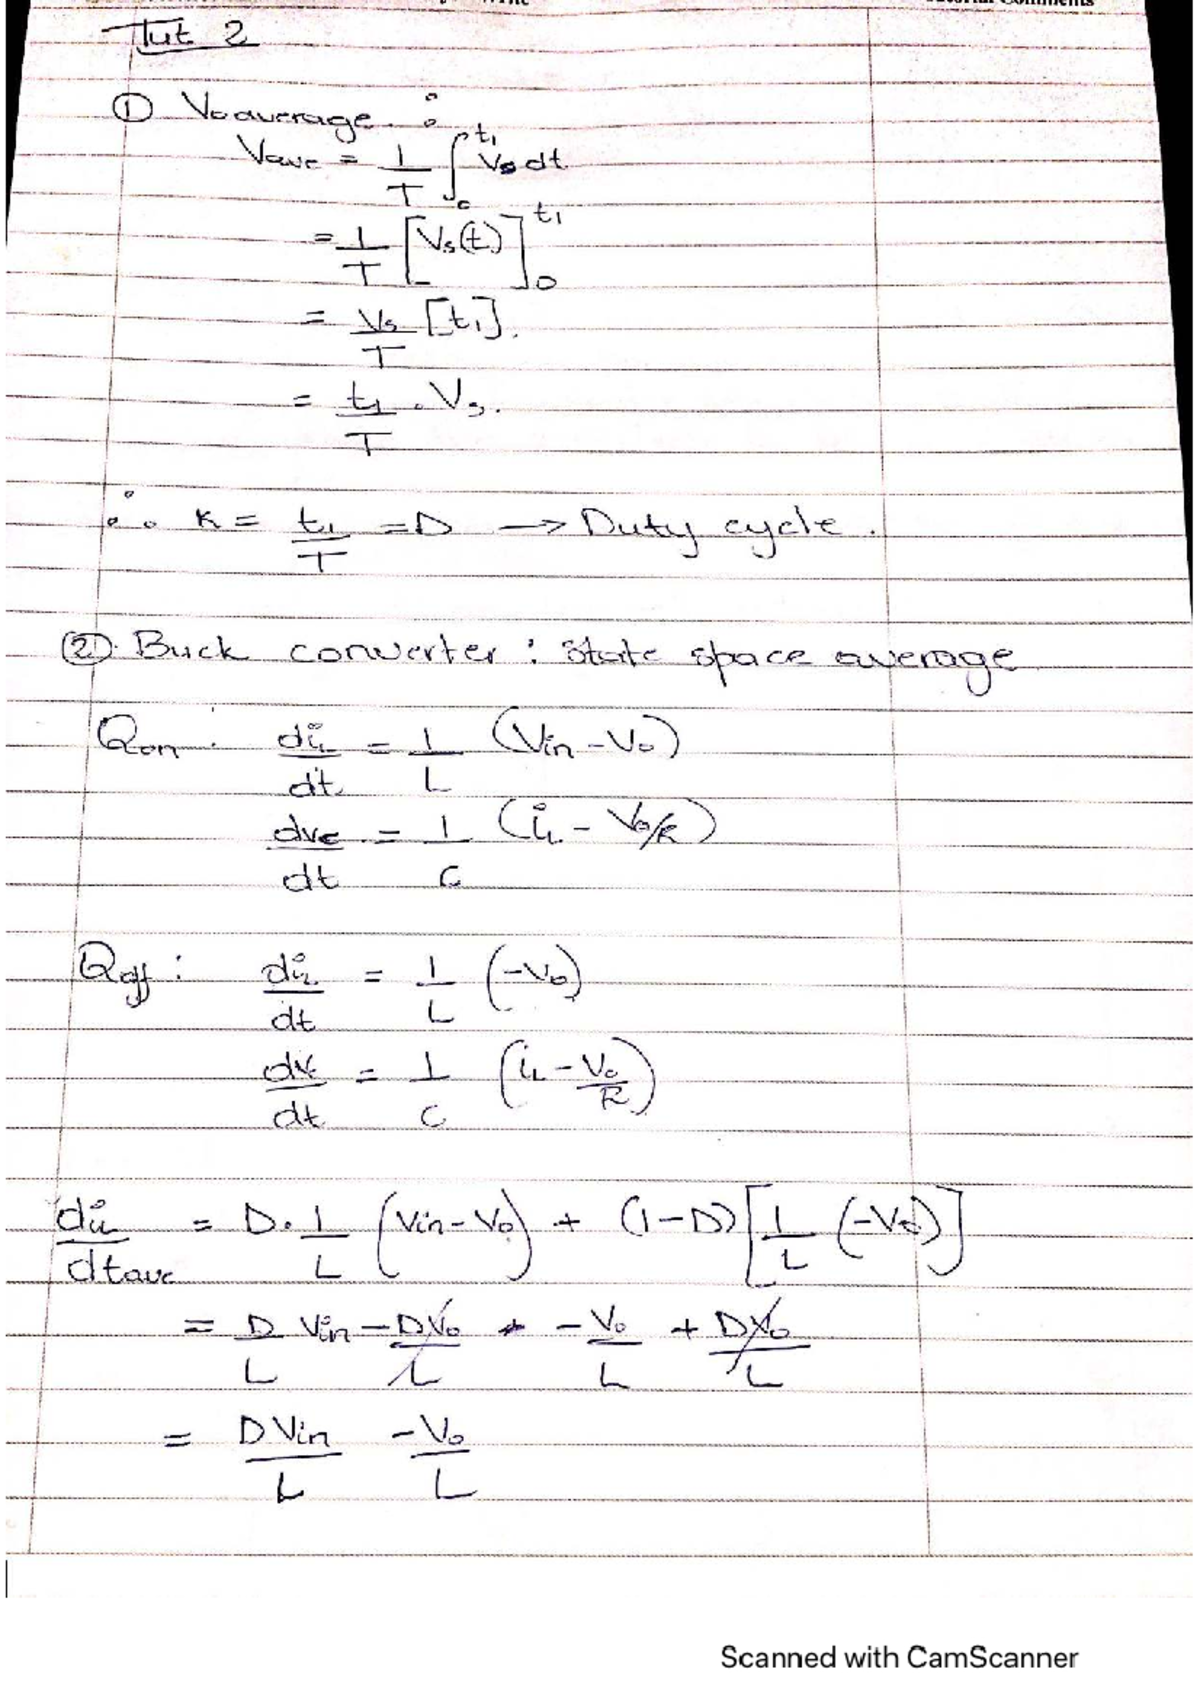 Tut 2
① Vo average :
Vave = 1/T ∫₀^t₁ Vs dt
= 1/T [Vs(t)]₀^t₁
= Vs/T [t₁].
= t₁/T . Vs.
∴ K = t₁/T = D → Duty cycle.
②. Buck converter : State space average
Qon : diL/dt = 1/L (Vin - Vo)
dvc/dt = 1/C (iL - Vo/R)
Qoff : diL/dt = 1/L (-Vo)
dvc/dt = 1/C (iL - Vo/R)
diL/dt ave = D. 1/L (Vin - Vo) + (1-D) [1/L (-Vo)]
= D/L Vin - DVo/L - Vo/L + DVo/L
= DVin/L - Vo/L
Scanned with CamScanner